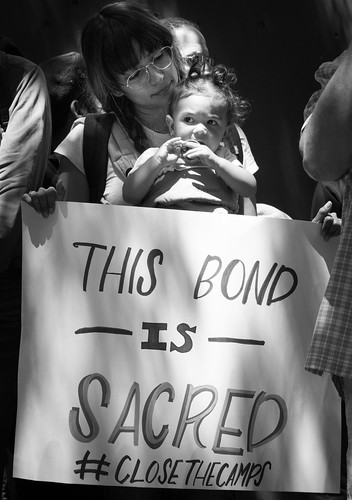 THIS BOND
— IS —
SACRED
#CLOSETHECAMPS